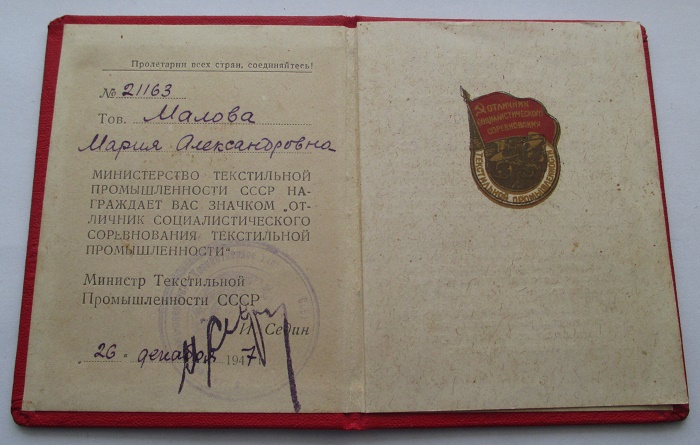 Пролетарии всех стран, соединяйтесь!
№ 21163
Тов. Малова
Мария Александровна
МИНИСТЕРСТВО ТЕКСТИЛЬНОЙ
ПРОМЫШЛЕННОСТИ СССР НА-
ГРАЖДАЕТ ВАС ЗНАЧКОМ „ОТ-
ЛИЧНИК СОЦИАЛИСТИЧЕСКОГО
СОРЕВНОВАНИЯ ТЕКСТИЛЬНОЙ
ПРОМЫШЛЕННОСТИ"
Министр Текстильной
Промышленности СССР
И. Седин
26. декабря 1947
ОТЛИЧНИК
СОЦИАЛИСТИЧЕСКОГО
СОРЕВНОВАНИЯ
ТЕКСТИЛЬНОЙ ПРОМЫШЛЕННОСТИ